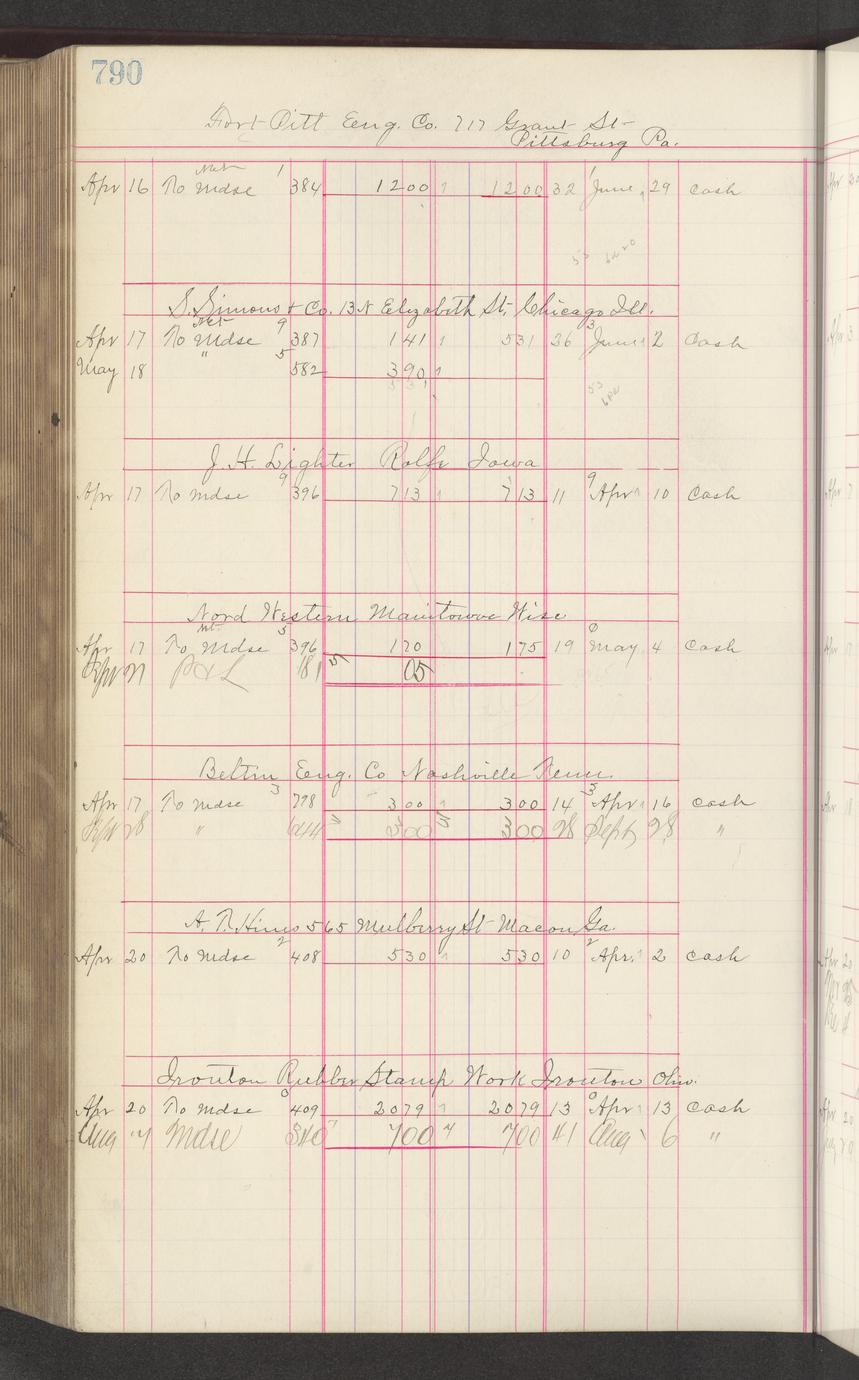 790
Fort Pitt Eng. Co. 717 Grant St
Pittsburg Pa.
Net 1 1
Apr 16 To Mdse 384 1200 1200 32 June 29 Cash
S. Simons & Co. 13 N Elizabeth St, Chicago Ill.
Net 9 3
Apr 17 To Mdse 387 141 531 26 June 2 Cash
May 18 " 5 582 390
531
J. H. Lighter Rolfe Iowa
9 9
Apr 17 To Mdse 396 713 713 11 Apr 10 Cash
Nord Western Manitowoc Wisc
Net 5 0
Apr 17 To Mdse 396 170 175 19 May 4 Cash
P & L 181 5 05
Eng. Co Nashville Tenn.
3 3
Apr 17 To Mdse 778 300 300 14 Apr 16 Cash
Sept 28 " 644 300 300 28 Sept 28 "
A. T. Hines 565 Mulberry St Macon Ga.
2 2
Apr 20 To Mdse 408 530 530 10 Apr. 2 Cash
Ironton Rubber Stamp Work Ironton Ohio.
Apr 20 To Mdse 409 2079 2079 13 Apr 13 Cash
Aug Mdse 700 700 41 Aug 6 "